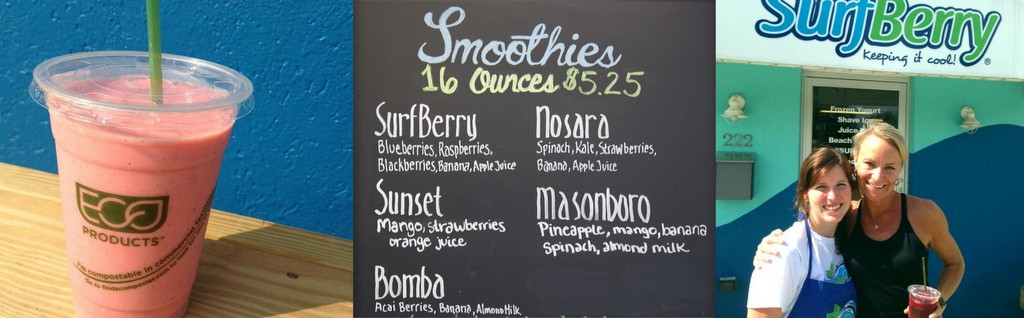 ECO
PRODUCTS
I'm compostable in commercial
Go to findacomposter.com to
Smoothies
16 Ounces $5.25
SurfBerry
Blueberries, Raspberries,
Blackberries, Banana, Apple Juice
Sunset
Mango, strawberries
orange juice
Bomba
Acai Berries, Banana, Almond Milk
Nosara
Spinach, Kale, Strawberries,
Banana, Apple Juice
Masonboro
Pineapple, mango, banana
Spinach, almond milk
SurfBerry®
keeping it cool!
222
Frozen Yogurt
Shave Ice
Juice
Beach